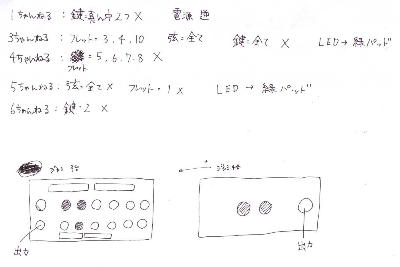 1ちゃんねる：鍵 真ん中2つ ✕　電源 逆
3ちゃんねる：フレット=3.4.10　弦=全て　鍵=全て ✕　LED→緑パッド
4ちゃんねる：フレット=5.6.7.8 ✕
5ちゃんねる：弦=全て✕　フレット=1 ✕　LED→緑パッド
6ちゃんねる：鍵=2 ✕
出力
出力